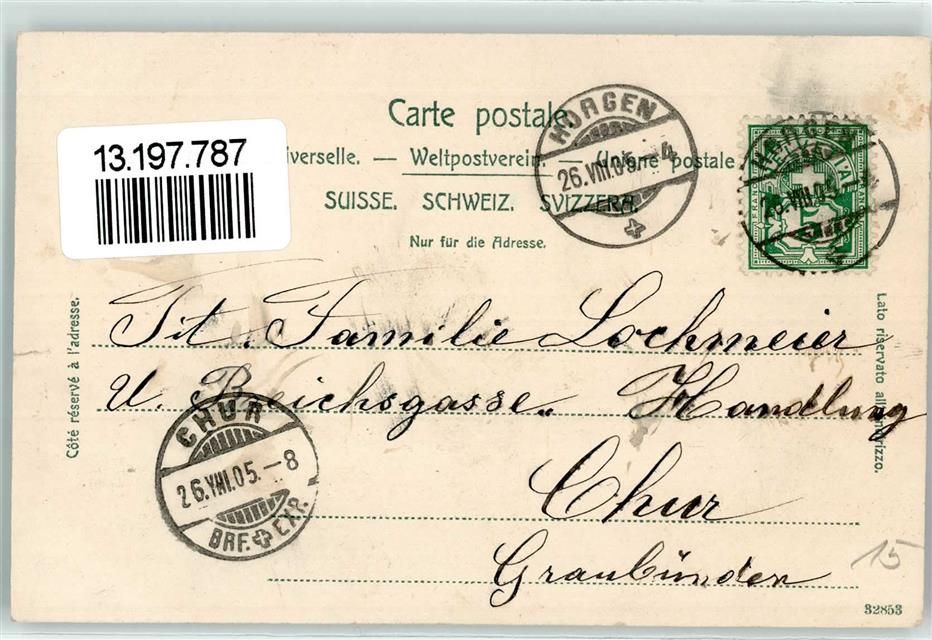 13.197.787
Carte postale.
iverselle. — Weltpostverein. — Unione postale
SUISSE. SCHWEIZ. SVIZZERA.
Nur für die Adresse.
HORGEN
26.VIII.05. 4
Côté réservé à l'adresse.
Lato riservato all'indirizzo.
Tit. Familie Lochmeier
U. Reichsgasse. Handlung
Chur
Graubünden
CHUR
26.VIII.05.-8
BRF. EXP.
15
32853